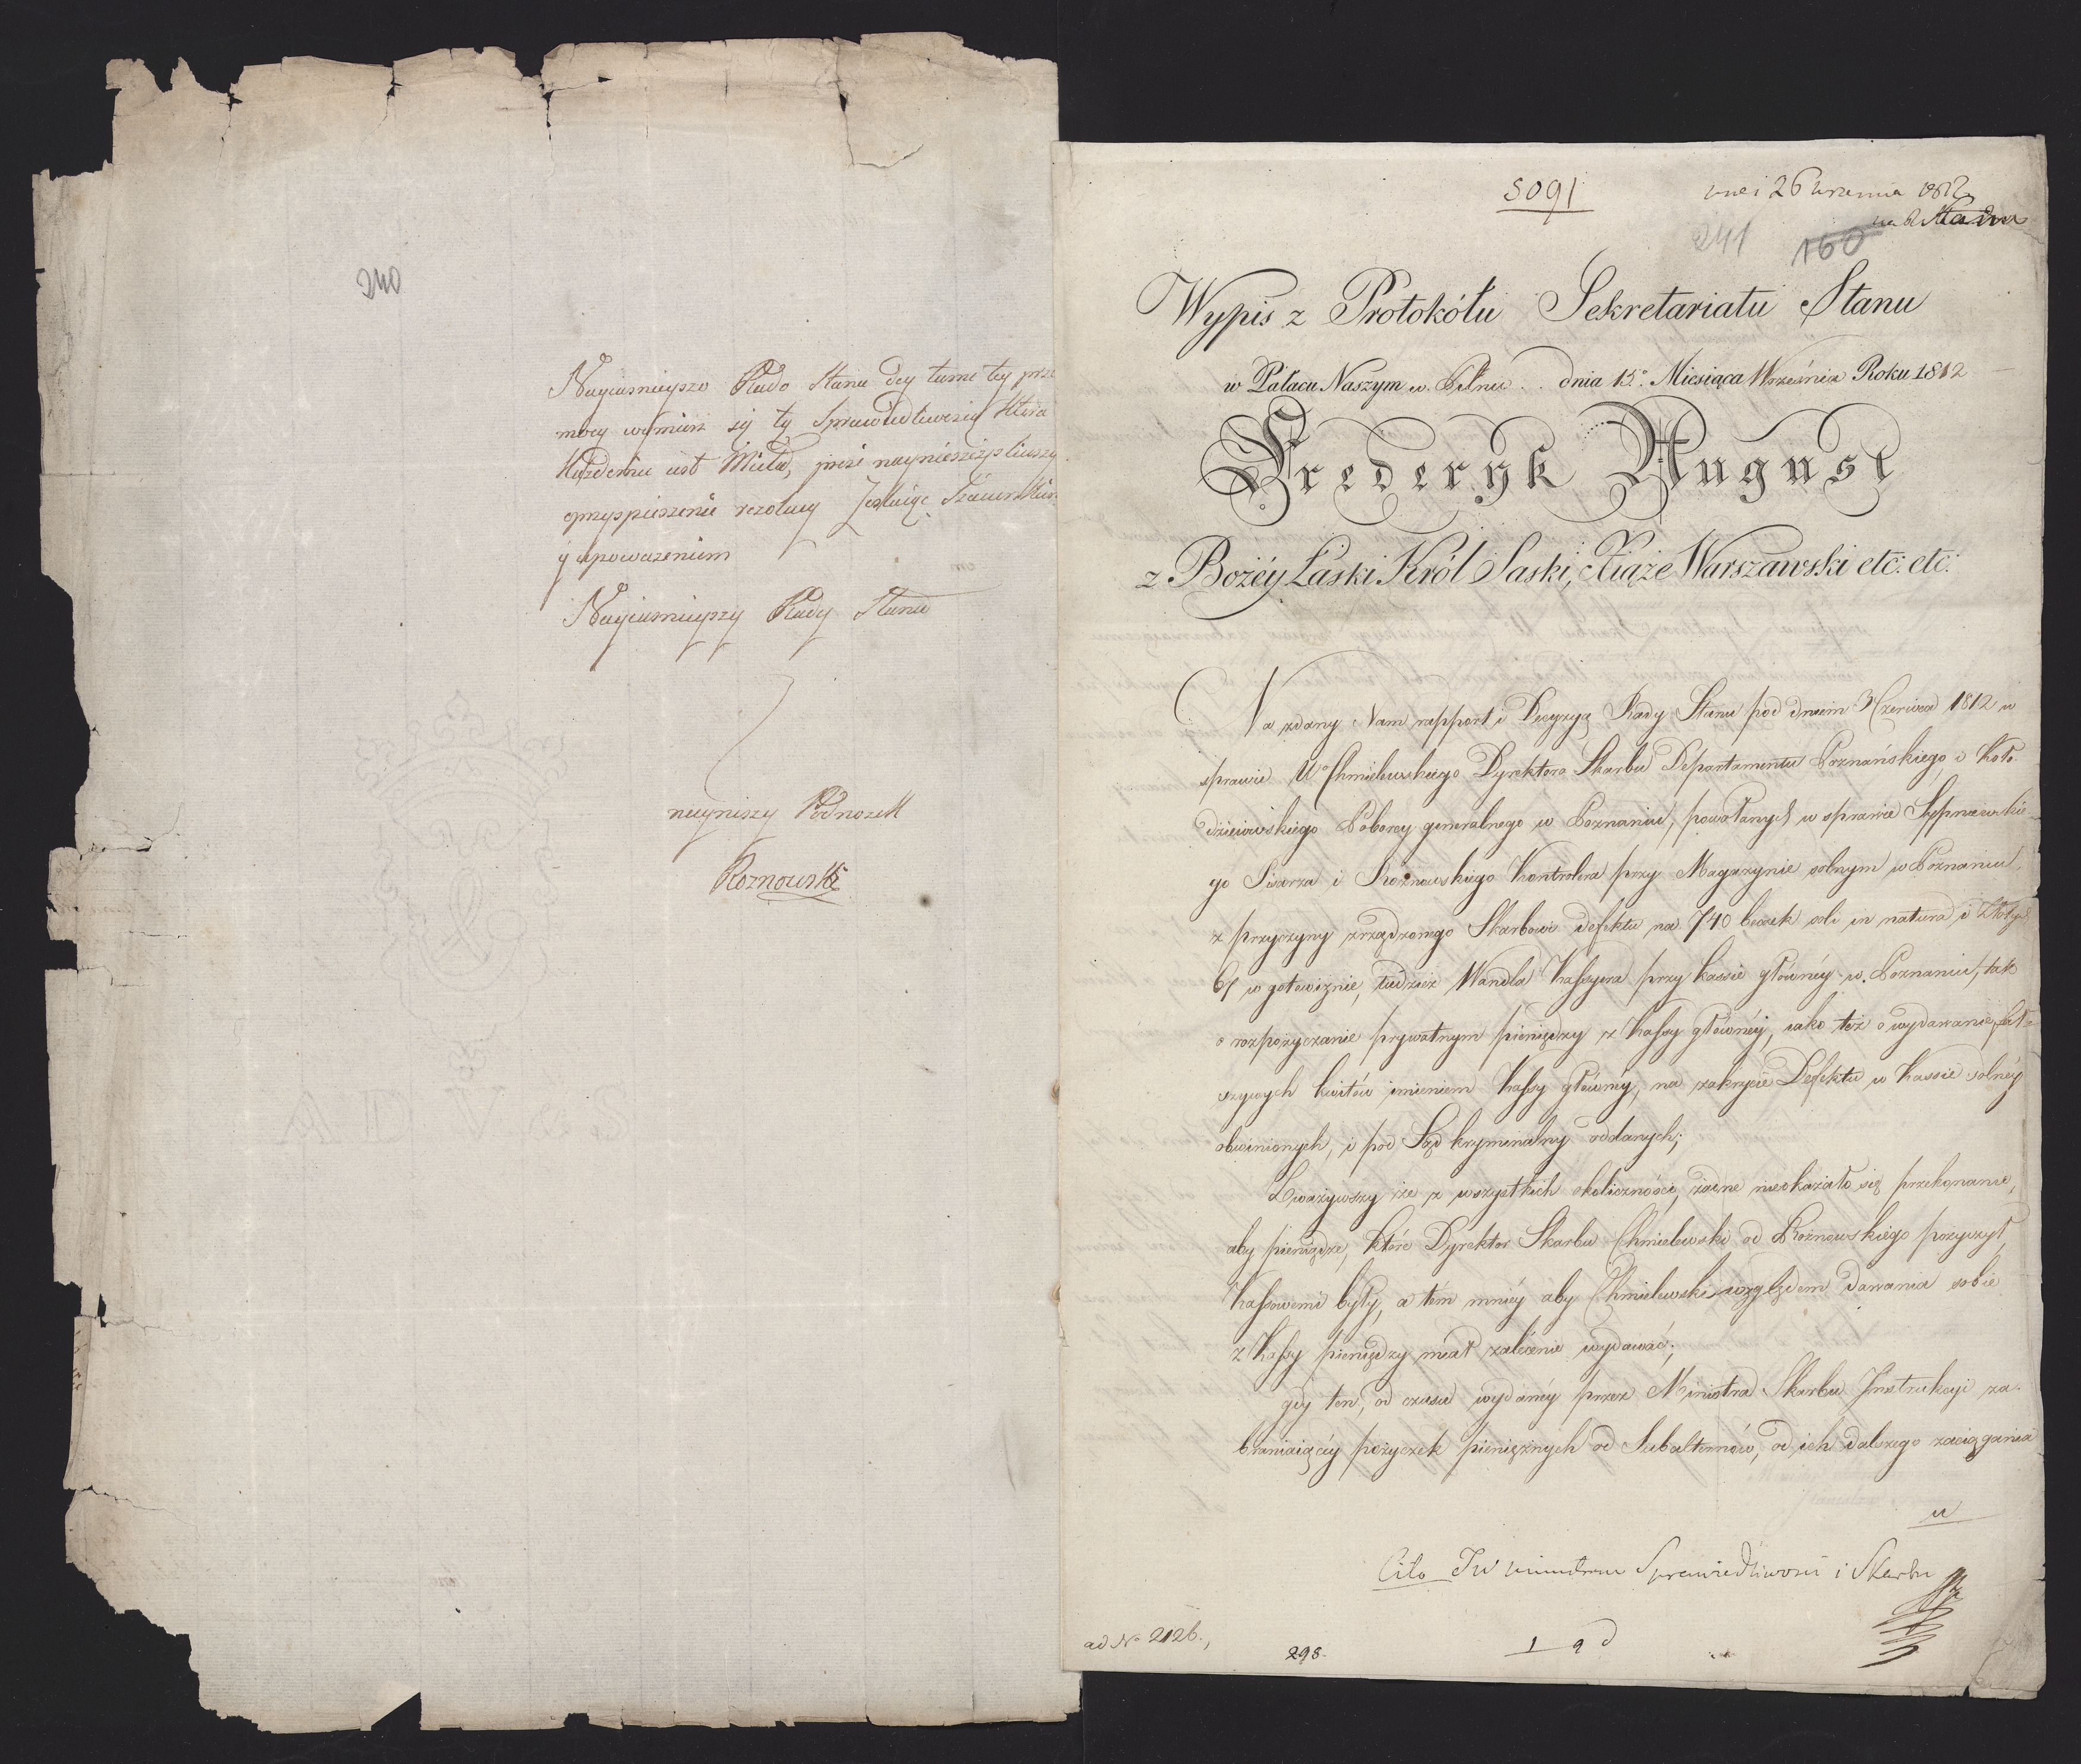 240
Nayiasnieysza Rado Stanu
mocy
każdemu iest
przyspieszenie rezolucyi
y upoważeniem
Nayiasnieyszy Rady Stanu
nayniszy Podnozek
Roznowski
5091
26 1812
241 160
Wypis z Protokółu Sekretariatu Stanu
w Pałacu Naszym w Pilnic dnia 15º Miesiąca Września Roku 1812
Fryderyk August
z Bożéy Łaski Król Saski, Xiąże Warszawski etc: etc:
Na zdany Nam rapport i Decyzyą Rady Stanu pod dniem 3 Czerwca 1812 w
sprawie Uº Chmielewskiego Dyrektora Skarbu Departamentu Poznańskiego, i Koło-
dzieiowskiego Poborcy generalnego w Poznaniu, powołanych w sprawie Sypniewskie-
go Pisarza i Rożnowskiego Kontrolera przy Magazynie solnym w Poznaniu,
z przyczyny zrządzonego Skarbowi defektu na 740 beczek soli in natura i Złotych
61 w gotowiznie, tudzież Wandla Kassyera przy kassie główney w Poznaniu, tak
o rozpożyczanie prywatnym pieniędzy z Kassy główney, iako też o wydawanie fał-
szywych kwitów imieniem Kassy główney, na zakrycie Defektu w Kassie solnéy
obwinionych, i pod Sąd kryminalny oddanych;
Zważywszy że z wszystkich okoliczności, żadne nieokazało się przekonanie,
aby pieniądze, które Dyrektor Skarbu Chmielewski od Rożnowskiego pożyczył,
Kassowemi były, a tém mniéy aby Chmielewski względem dawania sobie
z Kassy pieniędzy miał zalecenie wydawać;
gdy ten, od czasu wydanéy przez Ministra Skarbu Instrukcyi za-
braniaiącéy pożyczek pieniężnych od Subalternów, od ich dalszego zaciągania
u
Cito JW Ministrom Sprawiedliwości i Skarbu
ad Nº 2126.
298.